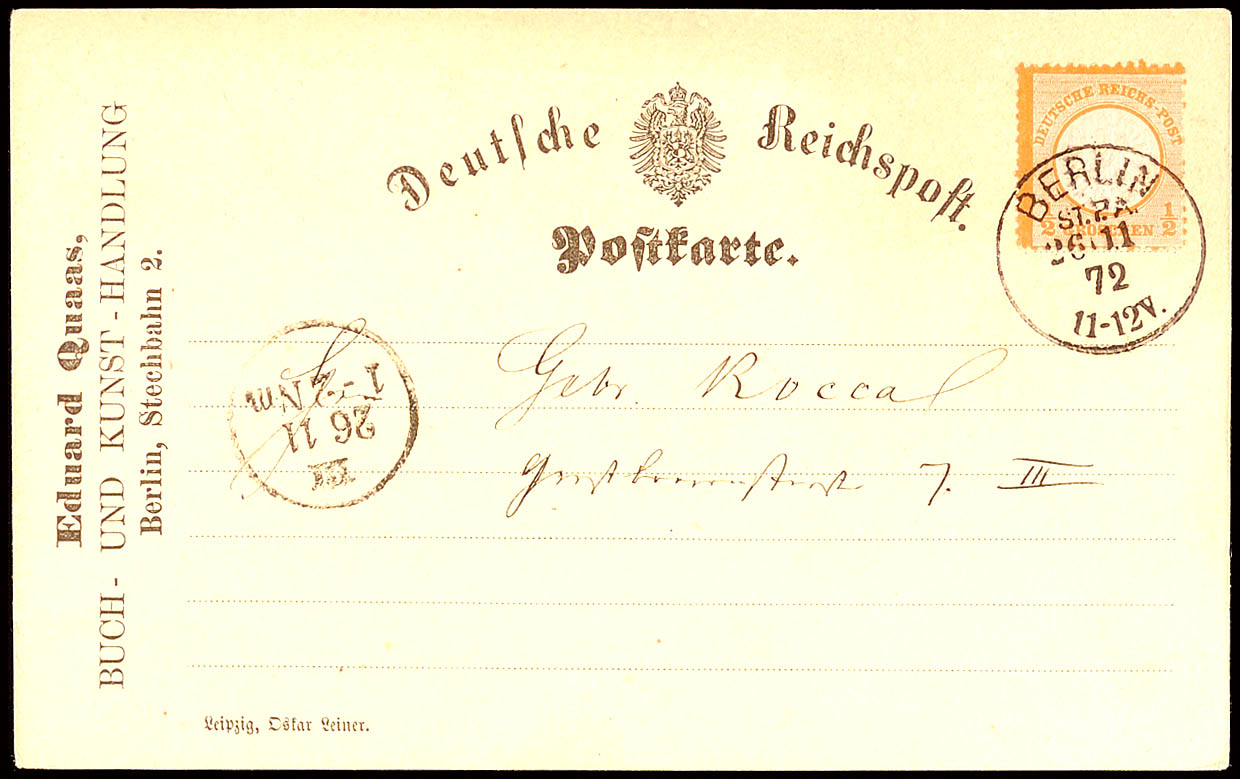 Deutsche Reichspost.
Postkarte.
DEUTSCHE REICHS-POST
1/2 GROSCHEN 1/2
BERLIN
ST.P.A.
26 11
72
11-12V.
Eduard Quaas,
BUCH- UND KUNST-HANDLUNG
Berlin, Stechbahn 2.
III
26 11
1-2 Nm
Gebr. Roccal
7. III
Leipzig, Oskar Leiner.